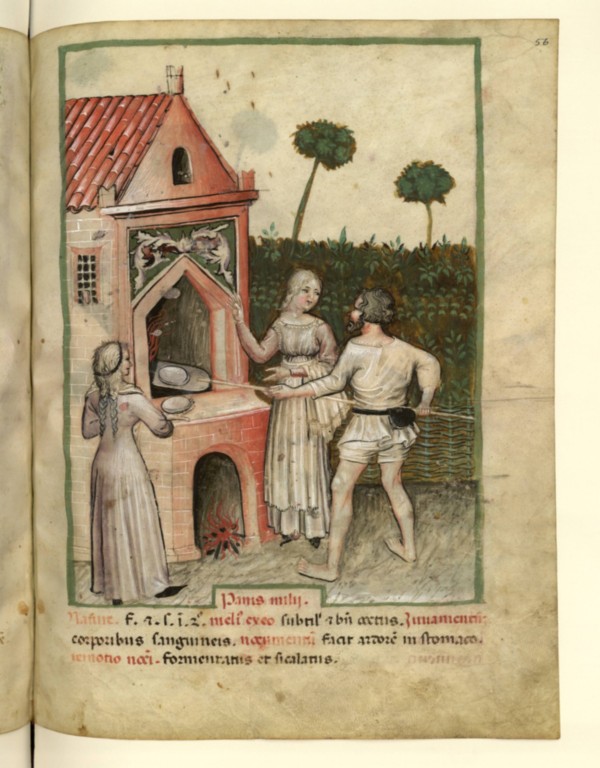 56
Panis milij.
Nature. f. ⁊ .s. i. 2°. mel᷒ exeo subtił ⁊ bn̄ coctus. Iuuamentū:
corporibus sanguineis. nocumentū facit ardorē in stomaco.
remotio noci. formentatus et sicalatus.